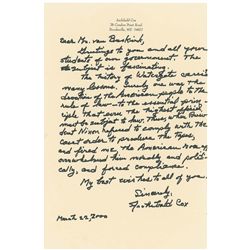 Archibald Cox
Brooksville, ME 04617
Dear Mr. van Benkirk,
Greetings to you and all your
students of our government. The
subject is fascinating.
The history of Watergate carries
many lessons. Surely one was the
devotion of the American people to the
rule of law—to the essential prin-
ciple that even the highest official
must be subject to law. Thus, when Presi-
dent Nixon refused to comply with the
Court order to produce the Tapes,
and fired me, the American people
overwhelmed him morally and politi-
cally, and forced compliance.
My best wishes to all of you.
Sincerely,
Archibald Cox
March 22, 2000